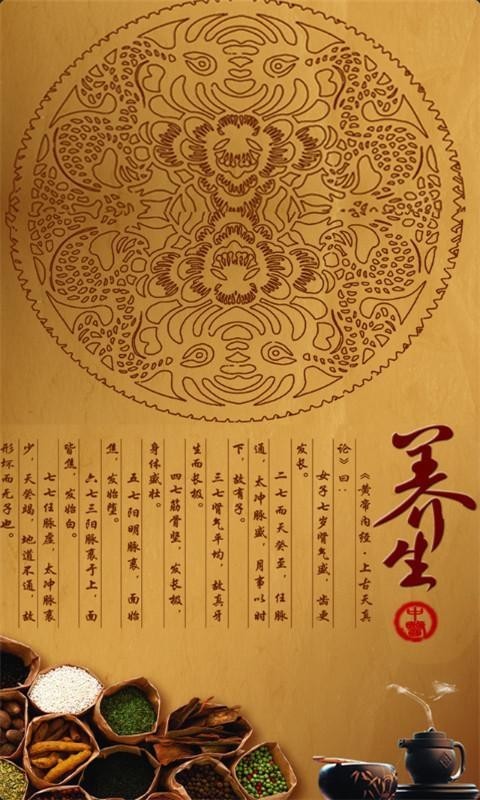 养生
中醫
《黄帝内经·上古天真
论》曰：
女子七岁肾气盛，齿更
发长。
二七而天癸至，任脉
通，太冲脉盛，月事以时
下，故有子。
三七肾气平均，故真牙
生而长极。
四七筋骨坚，发长极，
身体盛壮。
五七阳明脉衰，面始
焦，发始堕。
六七三阳脉衰于上，面
皆焦，发始白。
七七任脉虚，太冲脉衰
少，天癸竭，地道不通，故
形坏而无子也。